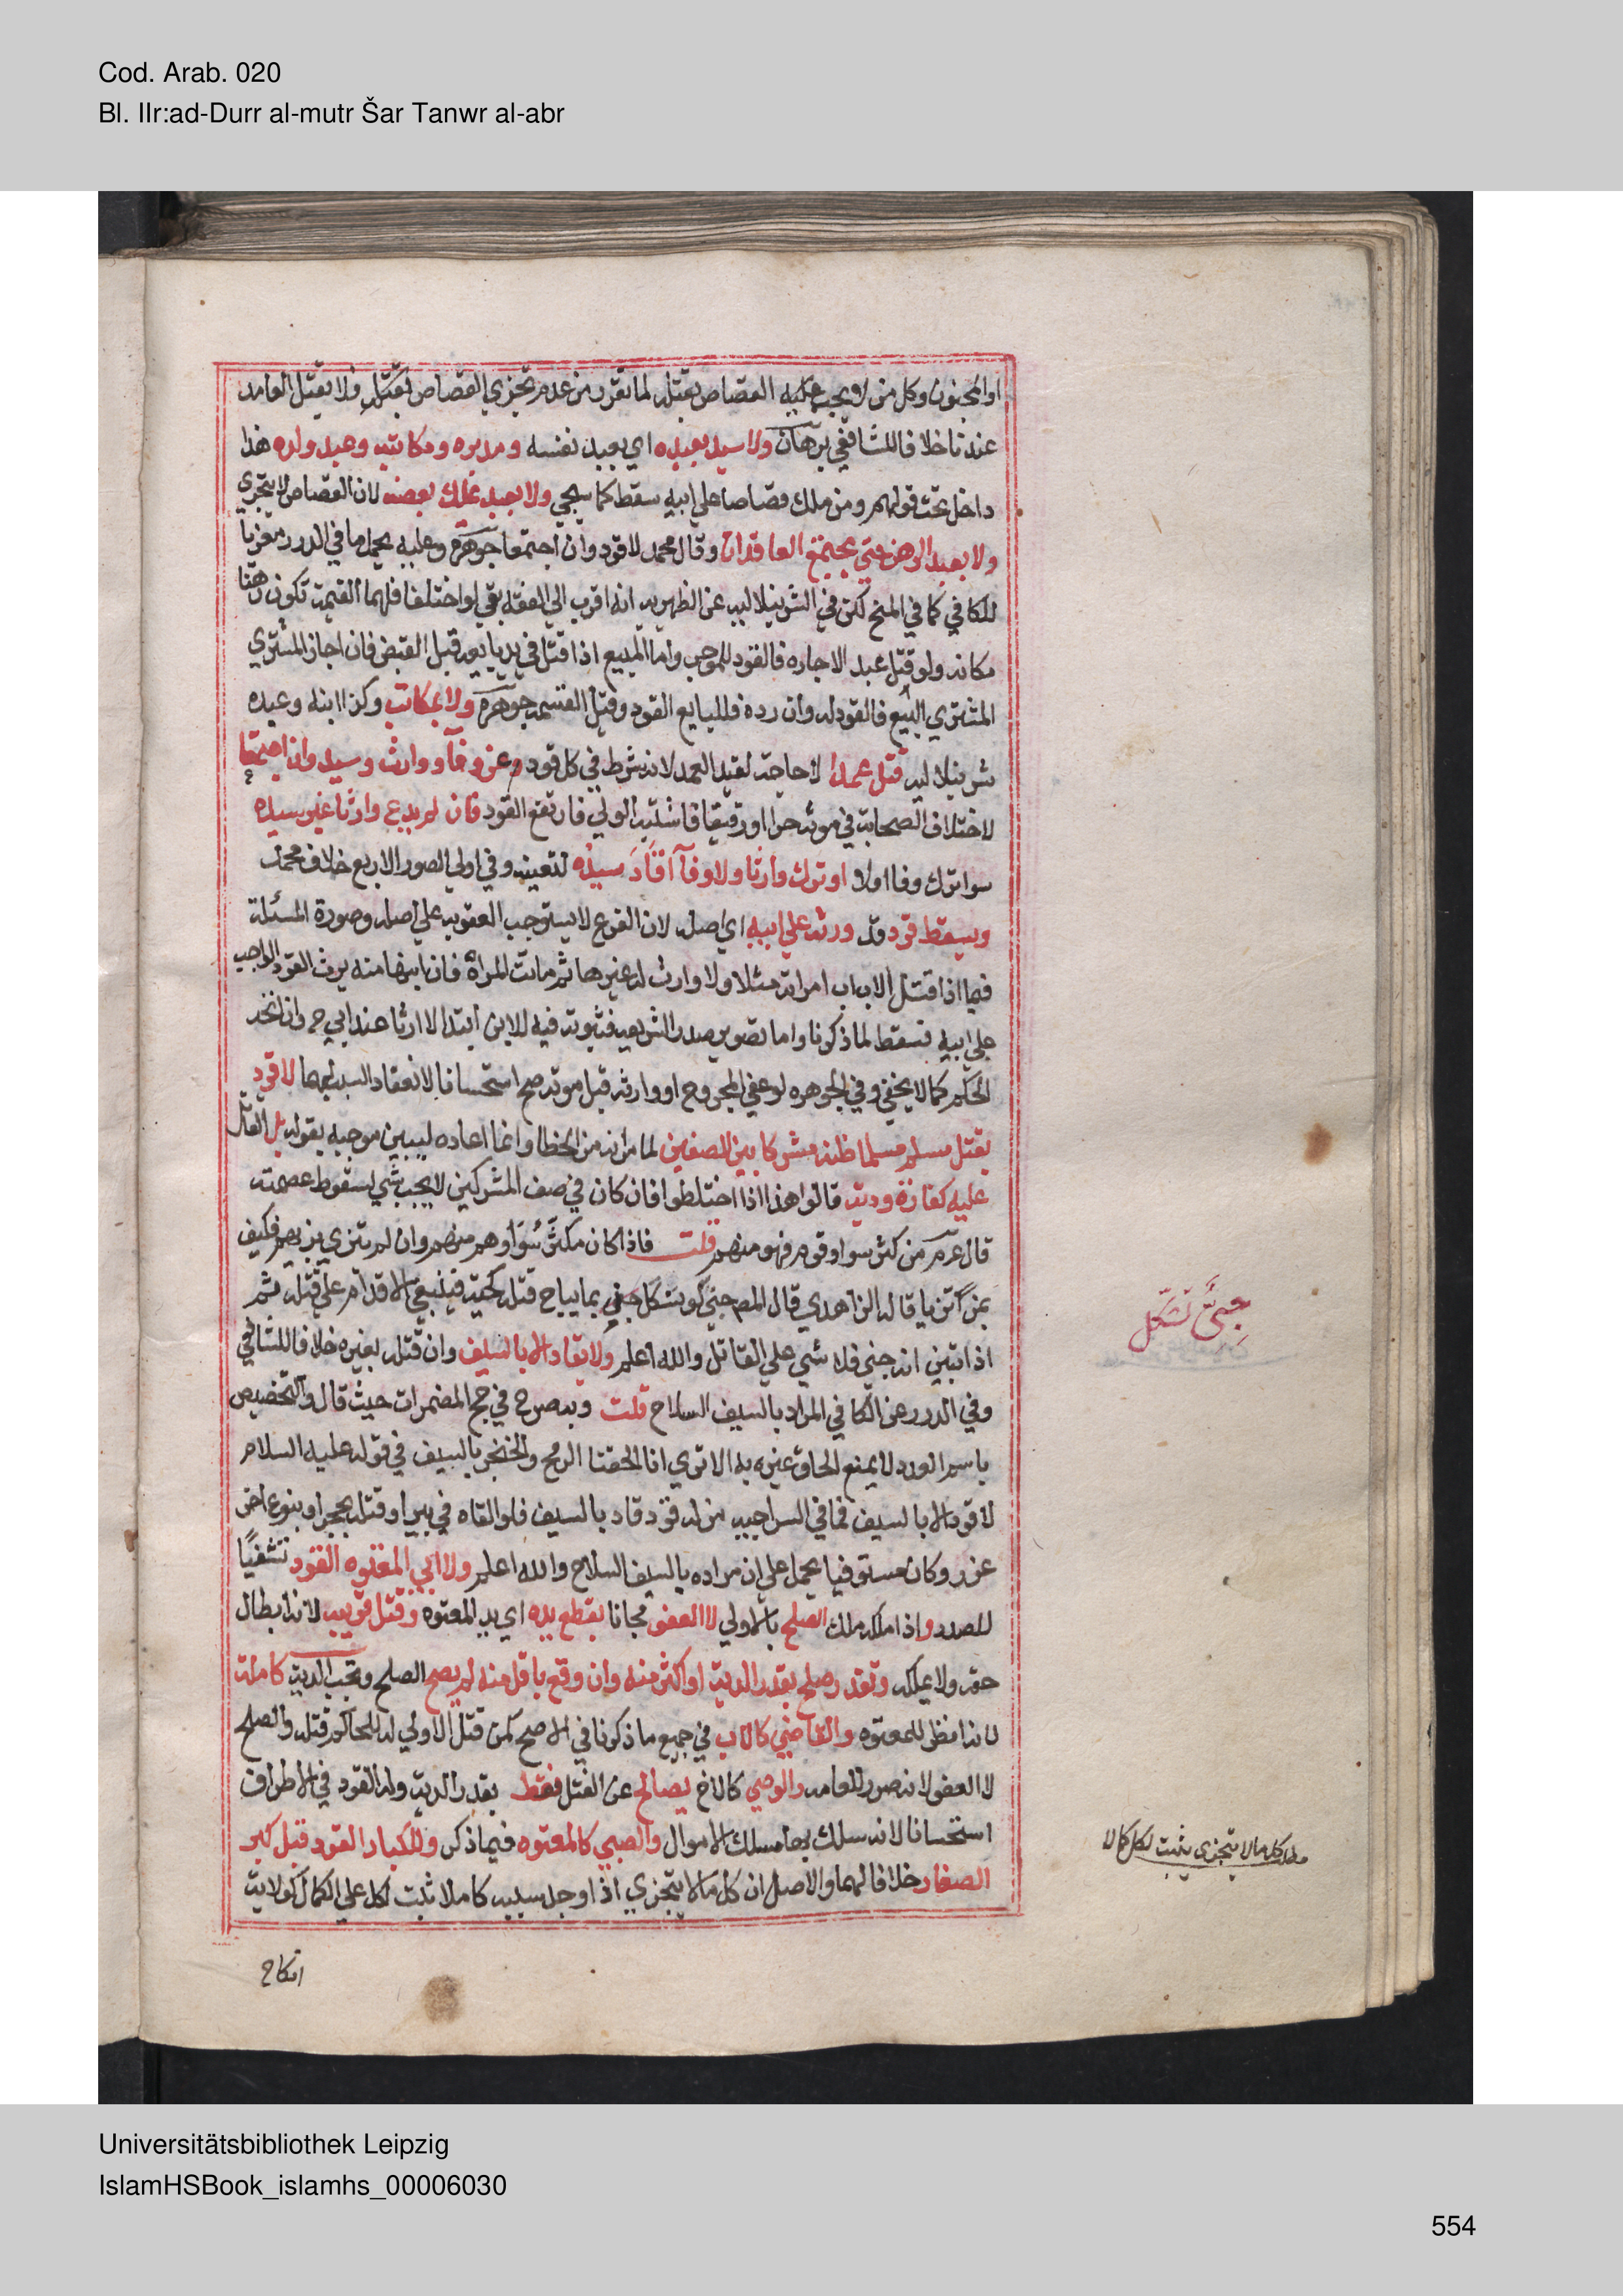 Cod. Arab. 020
Bl. IIr:ad-Durr al-mutr Šar Tanwr al-abr
او المجنون وكل من لا يجب عليه القصاص بقتله لما تقرر من عدم تجزي القصاص بقتل ولا يقتل العامد
عندنا خلافا للشافعي برهان ولا سيد بعبده اي بعبد نفسه ومدبره ومكاتبه وعبد ولده هذا
داخل تحت قولهم ومن ملك قصاصا علي ابيه سقط كما سيجي ولا بعبد يملك بعضه لان القصاص لا يتجزي
ولا بعبد الرهن حتي يجتمع العاقدان وقال محمد لا قود وان اجتمعا جوهره وعليه يحمل ما في الدرر معزيا
للكافي كما في المنح لكن في الشرنبلاليه عن الظهيريه انه اقرب الي الفقه بقي لو اختلفا فلهما القيمة تكون رهنا
مكانه ولو قتل عبد الاجاره فالقود للموجر واما المبيع اذا قتل في يد بايعه قبل القبض فان اجاز المشتري
المشتري البيع فالقود له وان رده فللبايع القود وقيل القيمه جوهره ولا بمكاتب وكذا ابنه وعبده
شرنبلاليه قتل عمدا لا حاجة لقيد العمد لانه شرط في كل قود عن وفآ ووارث وسيد وان اجتمعا
لاختلاف الصحابة في موته حرا او رقيقا فاشتبه الولي فارتفع القود فان لم يدع وارثا غير سيده
سوا ترك وفا اولا او ترك وارثا ولا وفآ اقاد سيده لتعينه وفي اولي الصور الاربع خلاف محمد
ويسقط قود قد ورثه علي ابيه اي اصله لان الفرع لا يستوجب العقوبه علي اصله وصورة المسئلة
فيما اذا قتل الاب اب امراته مثلا ولا وارث له غيرها ثم ماتت المراة فان ابنها منه يرث القود الواجب
علي ابيه فسقط لما ذكرنا واما تصوير صدر الشريعه فثبوته فيه للابن ابتدا لا ارثا عند ابي ح وان اتحد
الحكم كما لا يخفي وفي الجوهره لو عفي المجروح او وارثه قبل موته صح استحسانا لانعقاد السبب لهما لا قود
بقتل مسلم مسلما ظنه مشركا بين الصفين لما مر انه من الخطا وانما اعاده ليبين موجبه بقوله بل القاتل
عليه كفارة ودية قالوا هذا اذا اختلطوا فان كان في صف المشركين لا يجب شي لسقوط عصمته
قال عم من كثر سواد قوم فهو منهم قلت فاذا كان مكثر سوادهم منهم وان لم يتزي بزيهم فكيف
بمن تزيا قاله الزاهدي قال المص جني لو تشكل بما يباح قتله كحية فينبغي الاقدام علي قتله ثم
اذا تبين انه جني فلا شي علي القاتل والله اعلم ولا يقاد الا بالسيف وان قتله بغيره خلافا للشافعي
وفي الدرر عن الكافي المراد بالسيف السلاح قلت وبه صرح في حج المضمرات حيث قال والتخصيص
باسم العدد لا يمنع الحاق غيره به الا تري انا الحقنا الرمح والخنجر بالسيف في قوله عليه السلام
لا قود الا بالسيف فما في السراجيه من له قود قاد بالسيف فلو القاه في بير او قتله بحجر او بنوع اخر
عزر وكان مستوفيا يحمل علي ان مراده بالسيف السلاح والله اعلم ولابي المعتوه القود تشفيًا
للصدر واذا ملكه ملك الصلح بالاولي لا العفو مجانا بقطع يده اي يد المعتوه وقتل قريبه لانه ابطال
حقه ولا يملكه وتقيد صلحه بقدر الدية او اكثر منه وان وقع باقل منه لم يصح الصلح وتجب الدية كاملة
لانه انظر للمعتوه والقاضي كالاب في جميع ما ذكرنا في الاصح كمن قتل لا ولي له للحاكم قتله والصلح
لا العفو لانه ضرر للعامه والوصي كالاخ يصالح عن القتل فقط بقدر الدية وله القود في الاطراف
استحسانا لانه سلك بها مسلك الاموال والصبي كالمعتوه فيما ذكر وللكبار القود قبل كبر
الصغار خلافا لهما والاصل ان كل ما لا يتجزي اذا وجد سببه كاملا ثبت لكل علي الكمال كولاية
انكاح
جنيّ تشكّل
كلما لا يتجزي يثبت لكل كملا
Universitätsbibliothek Leipzig
IslamHSBook_islamhs_00006030
554